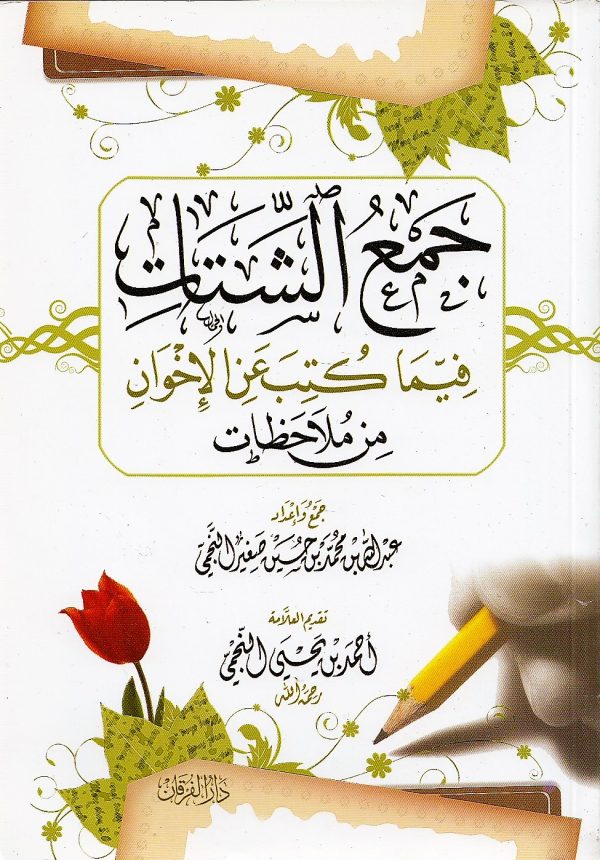 جَمْعُ الشَّتَاتِ
فِيمَا كُتِبَ عَنِ الإِخْوَانِ
مِن مُلَاحَظَات
جَمْعُ وَإِعْدَاد
عبد الله بن محمد بن حسين صغير النجمي
تقديم العلامة
أحمد بن يحيى النجمي
رحمه الله
دار الفرقان